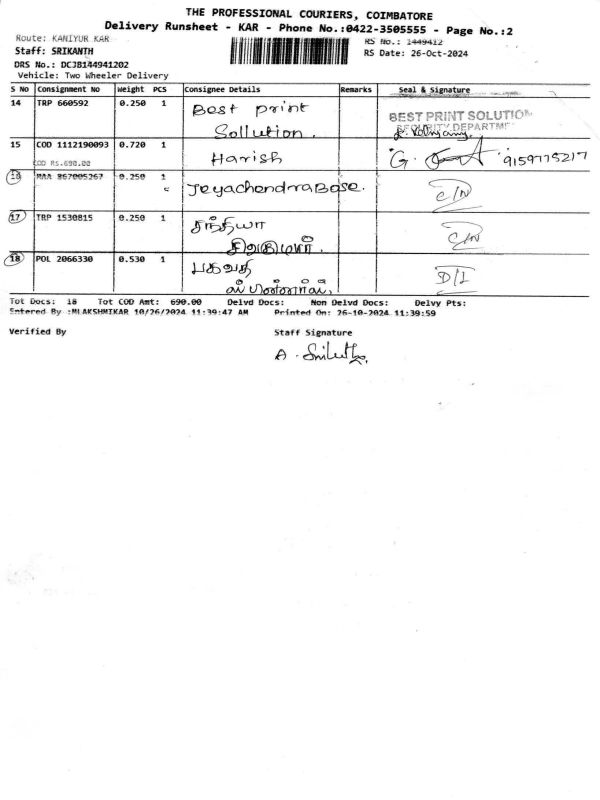 THE PROFESSIONAL COURIERS, COIMBATORE
Delivery Runsheet - KAR - Phone No.:0422-3505555 - Page No.:2
Route: KANIYUR KAR
RS No.: 1449412
Staff: SRIKANTH
RS Date: 26-Oct-2024
DRS No.: DCJB144941202
Vehicle: Two Wheeler Delivery
S No Consignment No Weight PCS Consignee Details Remarks Seal & Signature
14 TRP 660592 0.250 1 Best print
Sollution.
BEST PRINT SOLUTION
SECURITY DEPARTME
15 COD 1112190093 0.720 1 Harish G. 9159775217
COD RS.690.00
16 MAA 867005267 0.250 1 JeyachendraBose. C/N
17 TRP 1530815 0.250 1 சந்தியா C/N
18 POL 2066330 0.530 1 பகவதி D/I
Tot Docs: 18 Tot COD Amt: 690.00 Delvd Docs: Non Delvd Docs: Delvy Pts:
Entered By :MLAKSHMIKAR 10/26/2024 11:39:47 AM Printed On: 26-10-2024 11:39:59
Verified By Staff Signature